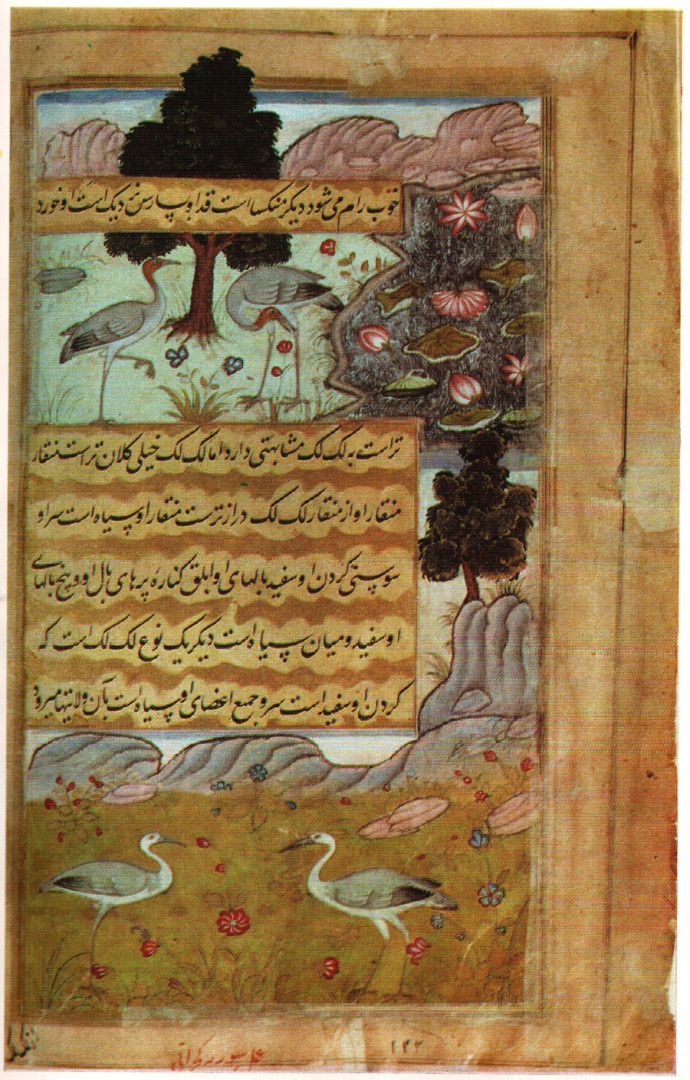 خوب رام می شود دیکر منکسا است قد او بسارس نزدیک است او خورد
تراست به لک لک مشابهتی دارد اما لک لک خیلی کلان تراست منقار
منقار او از منقار لک لک درازترست منقار او سیاه است سر او
سوسنی کردن او سفید بالهای او ابلق کنارهٔ پرهای بال او و پنج بالهای
او سفید و میان سیاه ست دیکر یک نوع لک لک است که
کردن او سفید است سر و جمع اعضای او سیاه است بآن ولایتها میرود
عمل